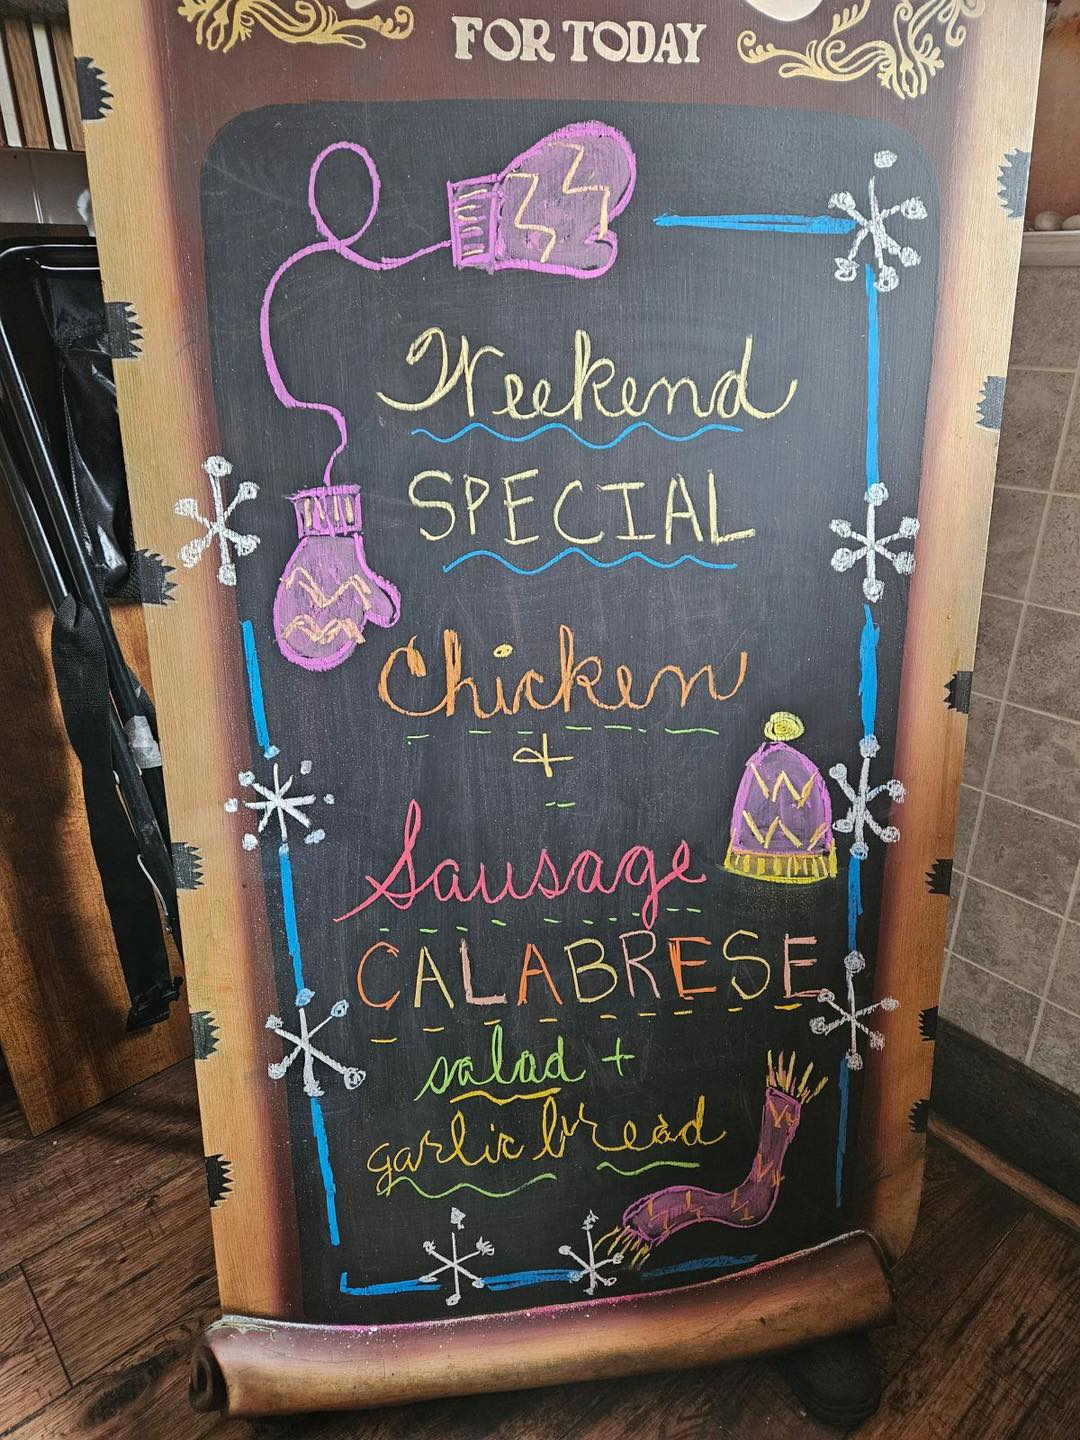 FOR TODAY
Weekend
SPECIAL
Chicken
&
Sausage
CALABRESE
salad +
garlic bread